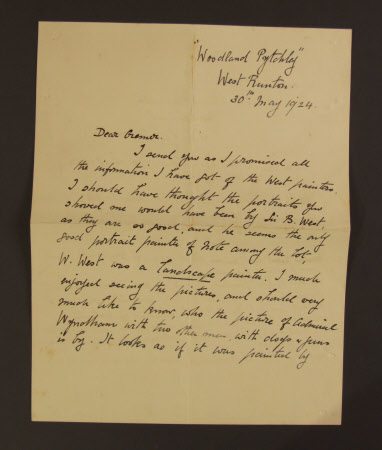 "Woodland Pytchley"
West Runton.
30th May 1924.
Dear Cremer.
I send you as I promised all
the information I have got of the West painters.
I should have thought the portraits you
showed me would have been by Sir B. West
as they are so good, and he seems the only
good portrait painter of note among the lot.
W. West was a landscape painter. I much
enjoyed seeing the pictures, and should very
much like to know, who the picture of Admiral
Wyndham with two other men with dogs & guns
is by. It looks as if it was painted by